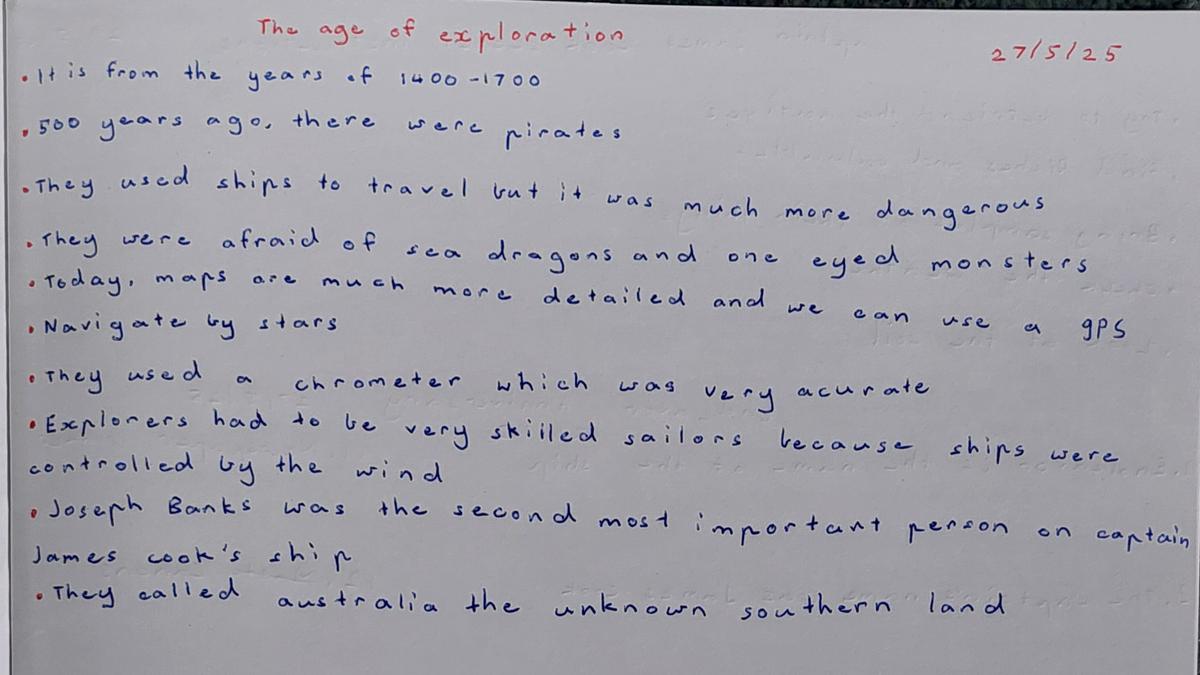 The age of exploration
27/5/25
• It is from the years of 1400-1700
• 500 years ago, there were pirates
• They used ships to travel but it was much more dangerous
• They were afraid of sea dragons and one eyed monsters
• Today, maps are much more detailed and we can use a gps
• Navigate by stars
• They used a chrometer which was very acurate
• Explorers had to be very skilled sailors because ships were
controlled by the wind
• Joseph Banks was the second most important person on captain
James cook's ship
• They called australia the unknown southern land